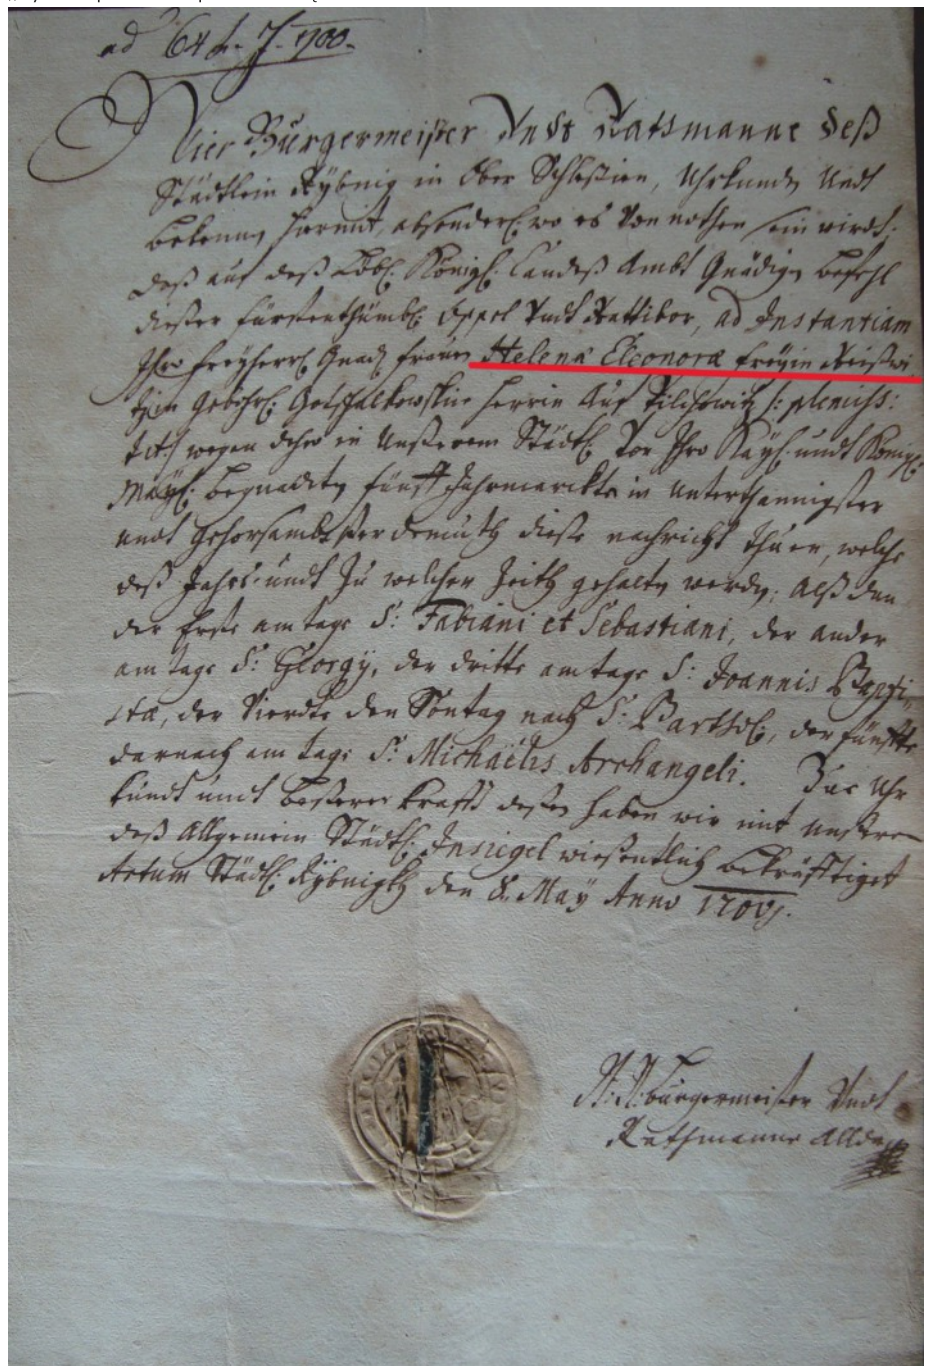 ad 64 1700.
Wier Bürgermeister Undt Rathsmanne deß
Städtlein Rÿbnig in Ober Schleßien, Uhrkunden Undt
bekennen hiermit, absonderl: wo es von nothen sein wirdt,
daß auf deß Löbl. Königl. Landeß Ambt Gnädigen befehl
dießer Fürstenthümbl. Oppel Undt Rattibor, ad Instantiam
Ihro Freyherrl. Gnad. Frauen Helenæ Eleonoræ Freÿin
Gebohrl. Herrin Auf Pilchowitz /: pleniss:
Tit:/ wegen derer in Unßerem Städtl. Von Ihro Kaÿl. undt Königl.
Maÿl. begnadeten fünff Jahrmarckte in Unterthännigster
undt Gehorsambster demuth dieße nachricht thuen, welche
deß Jahrs undt Zu welcher Zeith gehalten werden, Alß den
der Erste am tage S: Fabiani et Sebastiani, der ander
am tage S: Georgÿ, der dritte am tage S: Joannis Bapti-
sta, der Vierdte den Sontag nach S: Barthol:, der fünffte
darnach am tage S: Michaëlis Archangeli. Zue Uhr
kundt undt beßerer krafft deßen haben wir mit Unßeren
deß Allgemein Städtl. Insiegel wießentlich bekräfftiget
Actum Städtl. Rÿbnigkh den 8. Maÿ Anno
N: N: bürgermeister Undt
Rathmanne Allda